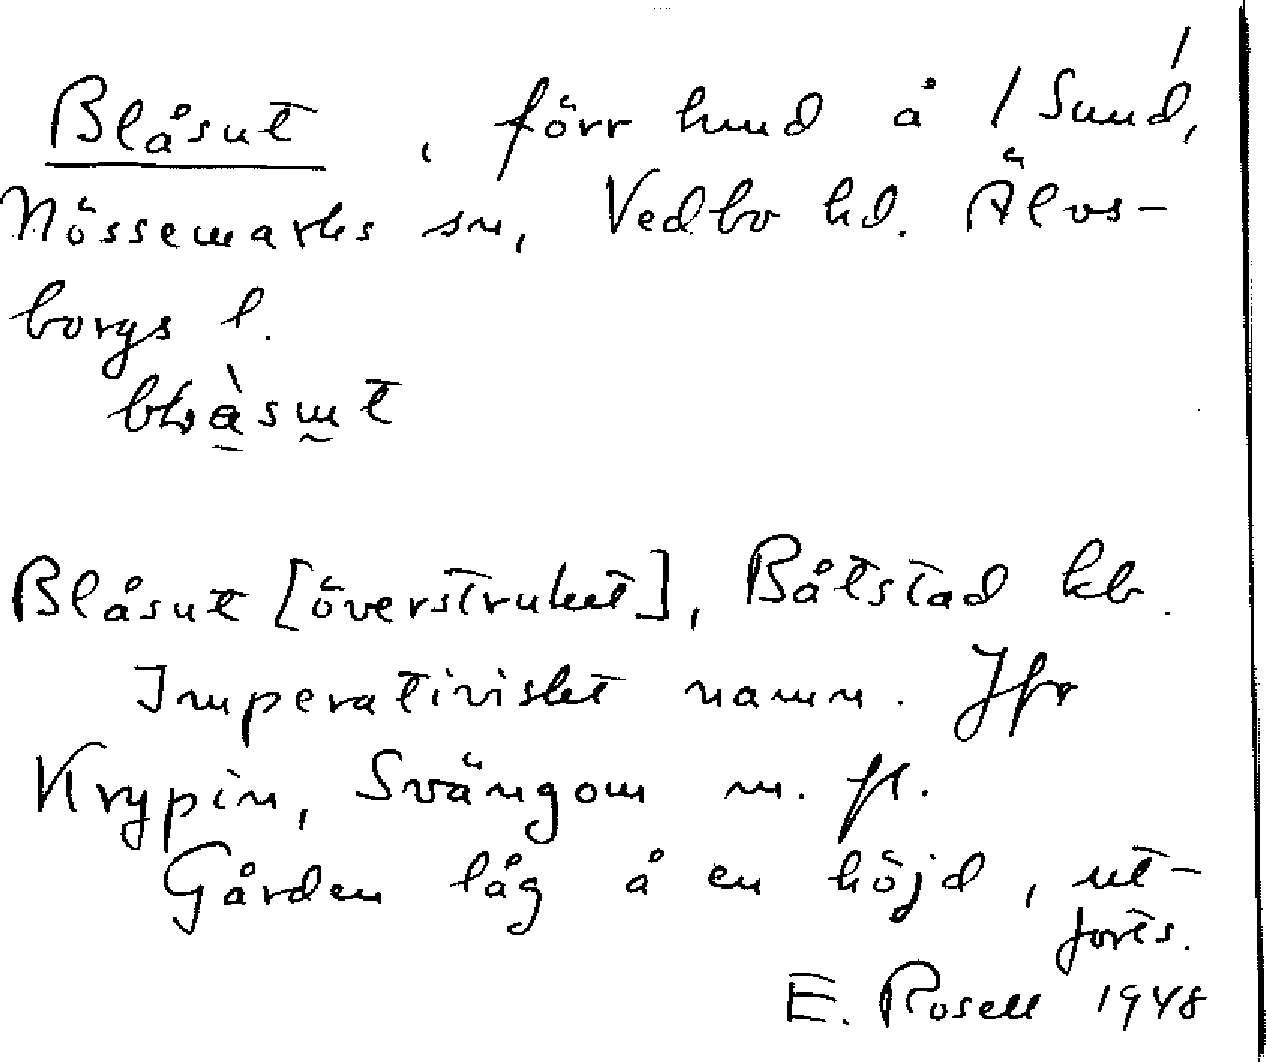 Blåsut, förr hmd å 1 Sund,
Nössemarks sn, Vedbo hd. Älvs-
borgs l.
Blåsut [överstruket], Båtstad kb.
Imperativiskt namn. Jfr
Krypin, Svängom m. fl.
Gården låg å en höjd, ut-
förts.
E. Rosell 1948